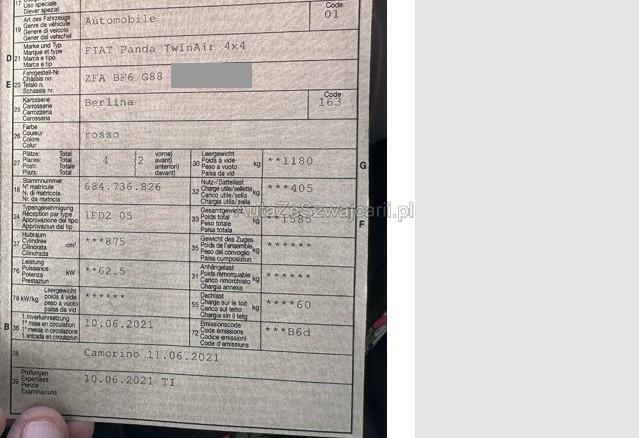 17 Uso speciale
Diever spezial
Code
19 Art des Fahrzeugs
Genre de véhicule
Genere di veicolo
Gener dal vehichel
Automobile
01
D 21 Marke und Typ
Marque et type
Marca e tipo
Marca e tip
FIAT Panda TwinAir 4x4
E 23 Fahrgestell-Nr.
Châssis no
Telaio n.
Schassis nr.
ZFA BF6 G88
25 Karosserie
Carrosserie
Carrozzeria
Carossaria
Berlina
Code
163
26 Farbe
Couleur
Colore
Colur
rosso
27 Plätze: Total
Places: Total
Posti: Totale
Plazs: Total
4 (2 vorne)
avant)
anteriori)
davant)
30 Leergewicht
Poids à vide
Peso a vuoto
Paisa da vid
kg **1180 G
18 Stammnummer
N° matricule
N. di matricola
Nr. da matricla
684.736.826
32 Nutz-/Sattellast
Charge utile/sellette
Carico utile/sella
Chargia utila/sella
kg ***405
24 Typengenehmigung
Réception par type
Approvazione del tipo
Approvaziun dal tip
1FD2 05
33 Gesamtgewicht
Poids total
Peso totale
Paisa totala
kg **1585 F
AutaZeSzwajcarii.pl
37 Hubraum
Cylindrée
Cilindrata
Cilindrada
cm³ ***875
35 Gewicht des Zuges
Poids de l'ensemble
Peso del convoglio
Paisa cumposiziun
kg ******
76 Leistung
Puissance
Potenza
Prestaziun
kW **62.5
31 Anhängelast
Poids remorquable
Carico rimorchiato
Chargia annexa
kg ******
78 kW/kg Leergewicht
poids à vide
peso a vuoto
paisa da vid
******
55 Dachlast
Charge sur le toit
Carico sul tetto
Chargia sin il tetg
kg ****60
B 36 1. Inverkehrsetzung
1re mise en circulation
1a messa in circolazione
1. entrada en circulaziun
10.06.2021
72 Emissionscode
Code émissions
Codice emissioni
Code d'emissiuns
***B6d
38 Camorino 11.06.2021
39 Prüfungen
Expertises
Perizie
Examinaziuns
10.06.2021 TI